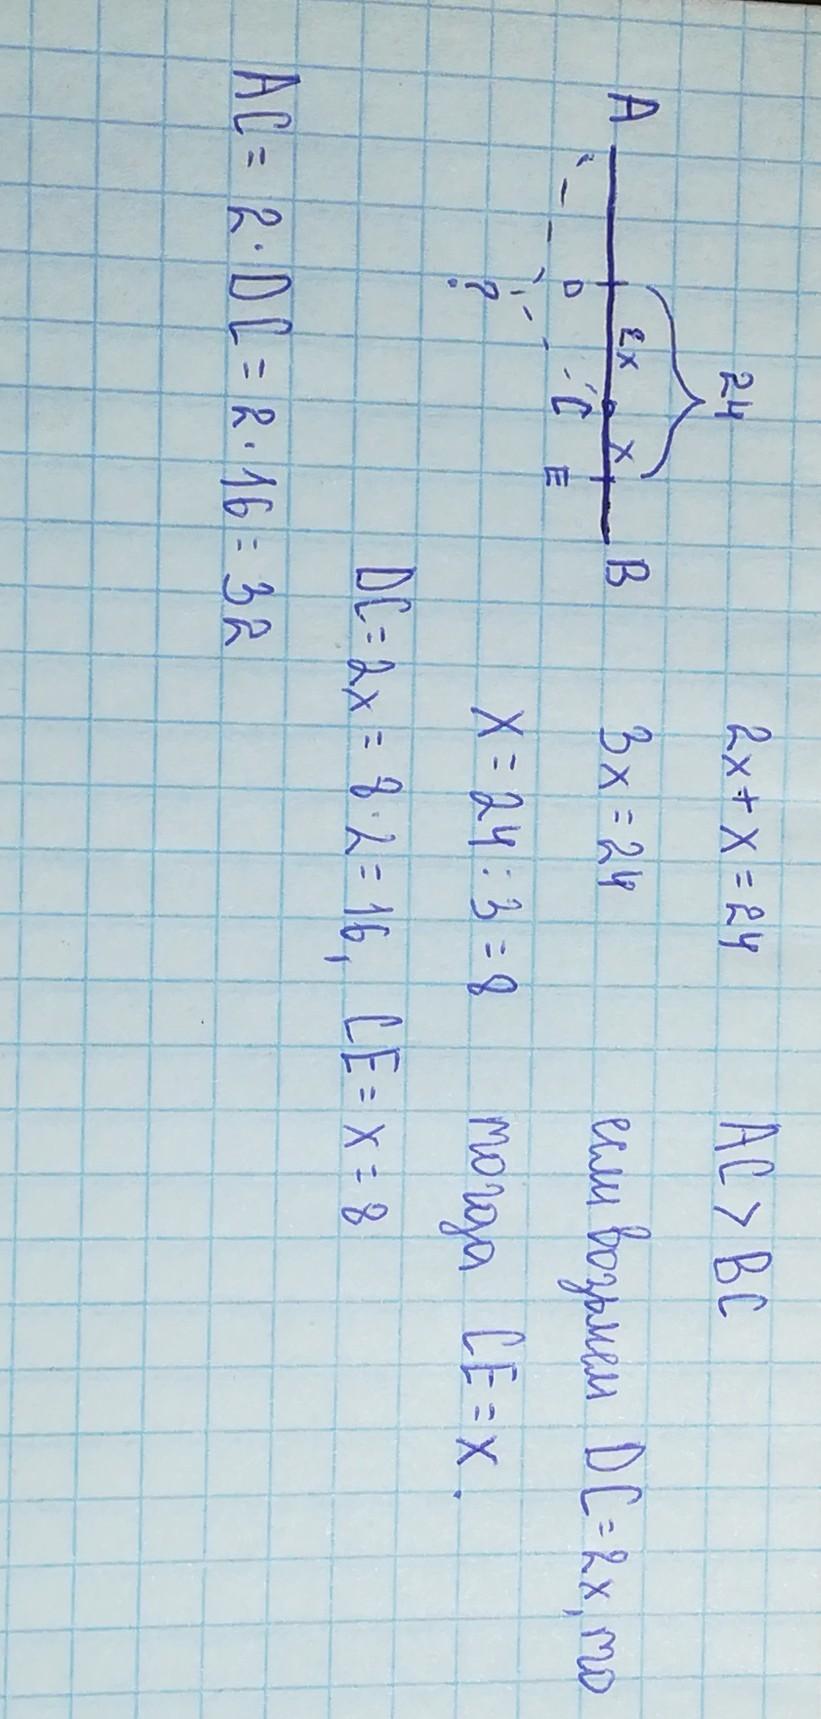 24
A D 2x C x E B
?
2x + x = 24
3x = 24
x = 24 : 3 = 8
AC > BC
если возьмем DC = 2x, то
тогда CE = x.
DC = 2x = 8 · 2 = 16, CE = x = 8
AC = 2 · DC = 2 · 16 = 32